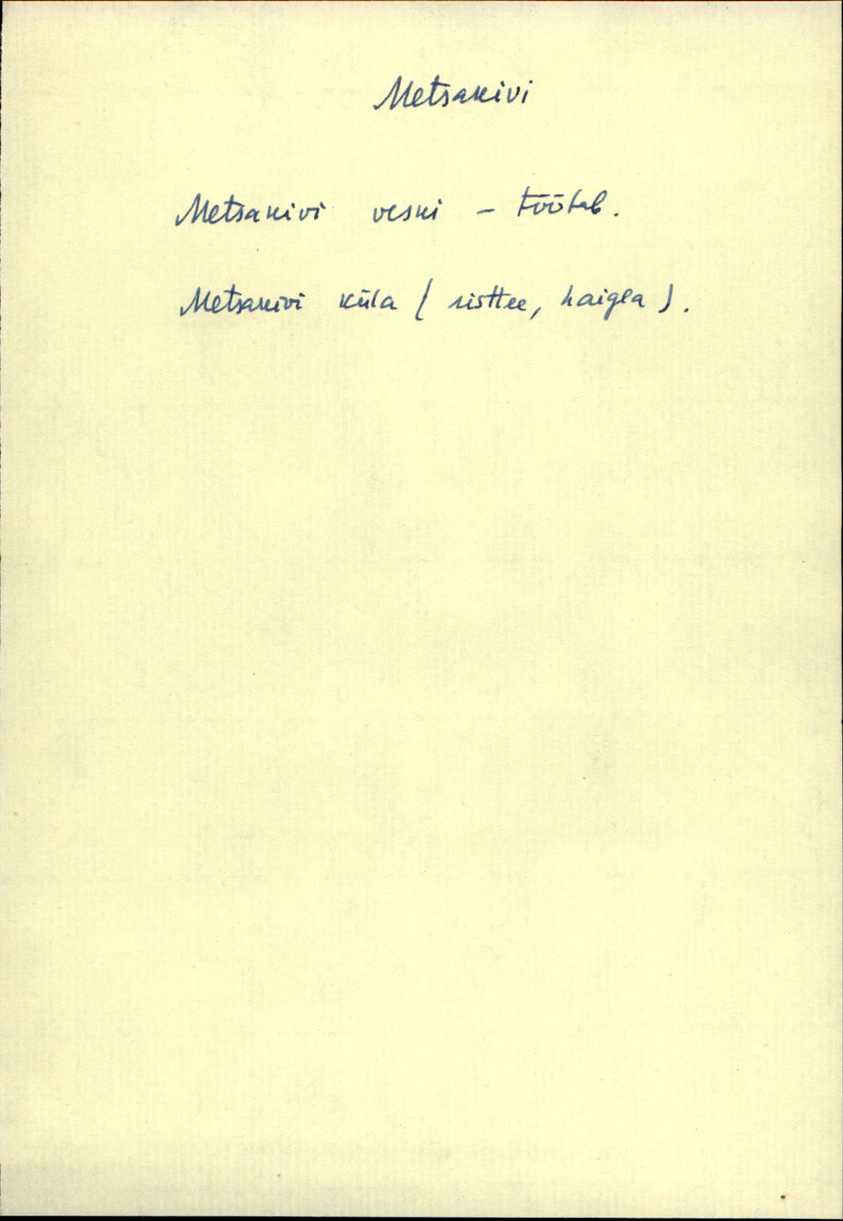 Metsakivi
Metsakivi veski - töötab.
Metsakivi küla ( risttee, haigla ).